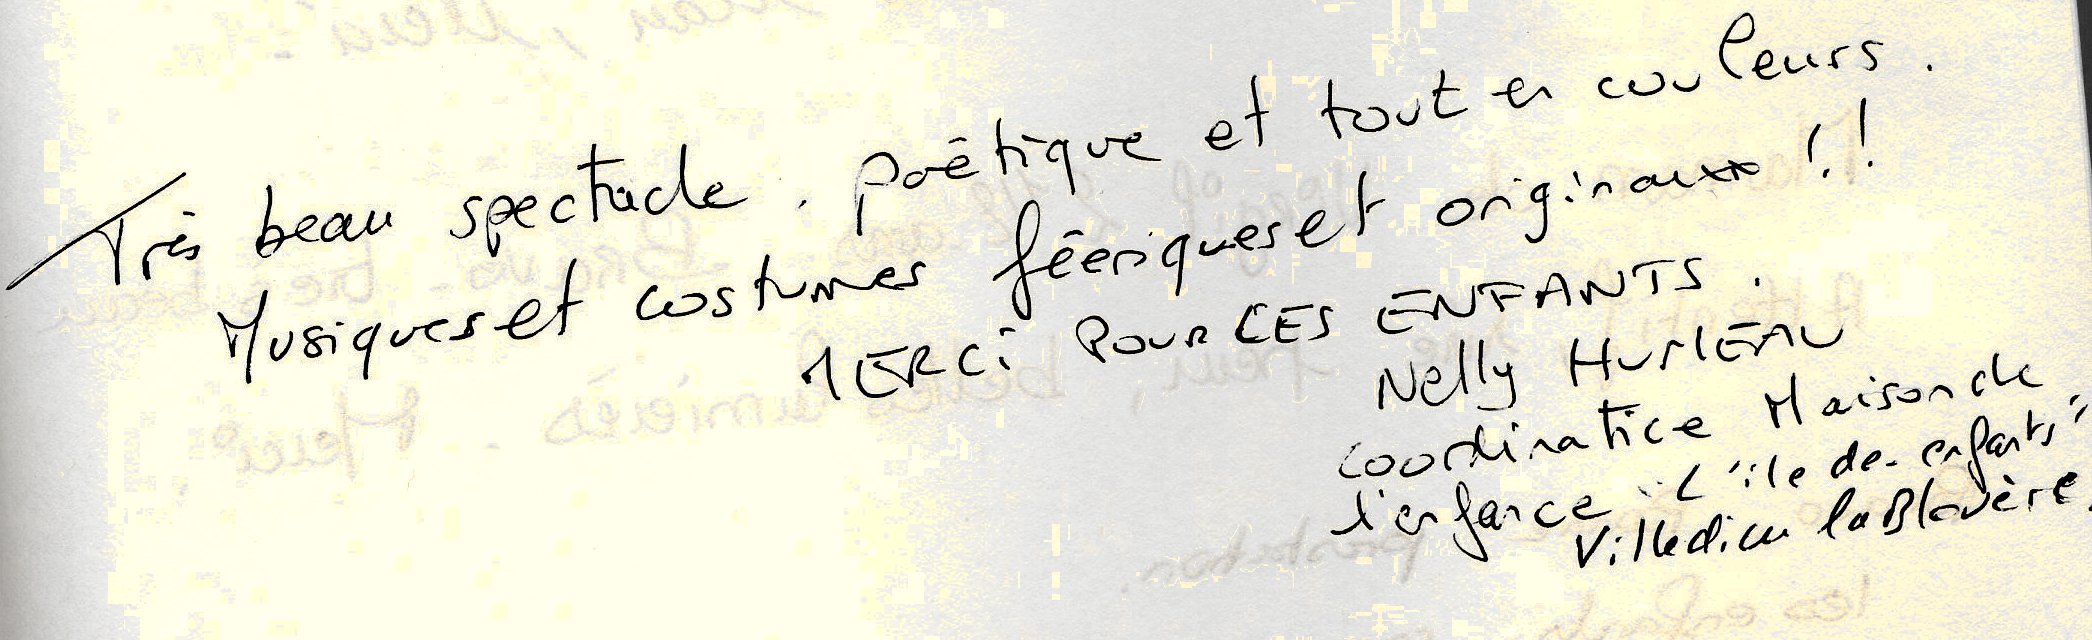 Très beau spectacle. poêtique et tout en couleurs.
Musiques et costumes féeriques et originaux !!
MERCi POUR CES ENFANTS.
Nelly HUMEAU
coordinatice Maison de
l'enfance "L'ile de-enfants"
Villedieu la Blouère.